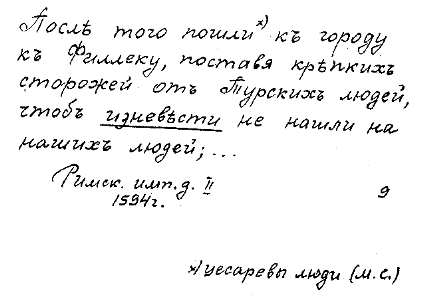 Послѣ того пошли х) къ городу
къ Филлеку, поставя крѣпкихъ
сторожей отъ Турскихъ людей,
чтобъ изневѣсти не нашли на
нашихъ людей; ...
Римск. имп. д. II
1594г.
9
х) цесаревы люди (М.С.)